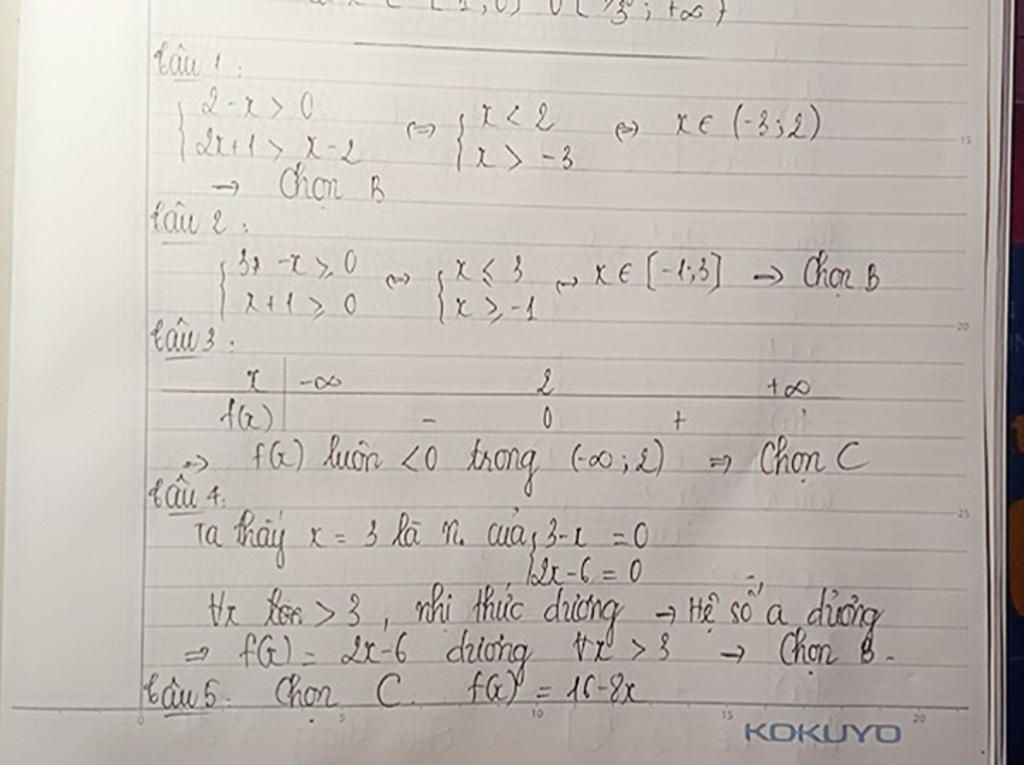 x ∈ [-1; 0) ∪ [ 3 ; +∞)
Câu 1 :
{ 2 - x > 0
{ 2x+1 > x - 2
⇔ { x < 2
{ x > -3
⇔ x ∈ (-3 ; 2)
→ Chọn B
Câu 2 :
{ 3 - x ≥ 0
{ x + 1 ≥ 0
⇔ { x ≤ 3
{ x ≥ -1
⇔ x ∈ [-1; 3] → Chọn B
Câu 3 :
x | -∞ 2 +∞
f(x) | - 0 +
⇒ f(x) luôn < 0 trong (-∞ ; 2) ⇒ Chọn C
Câu 4.
Ta thấy x = 3 là n. của { 3-x = 0
{ 2x - 6 = 0
∀x > 3 , nhi thức dương → Hệ số a dương
⇒ f(x) = 2x - 6 dương ∀x > 3 → Chọn B.
Câu 5. Chọn C. f(x) = 16 - 8x
KOKUYO
15
20
25
0 5 10 15 20